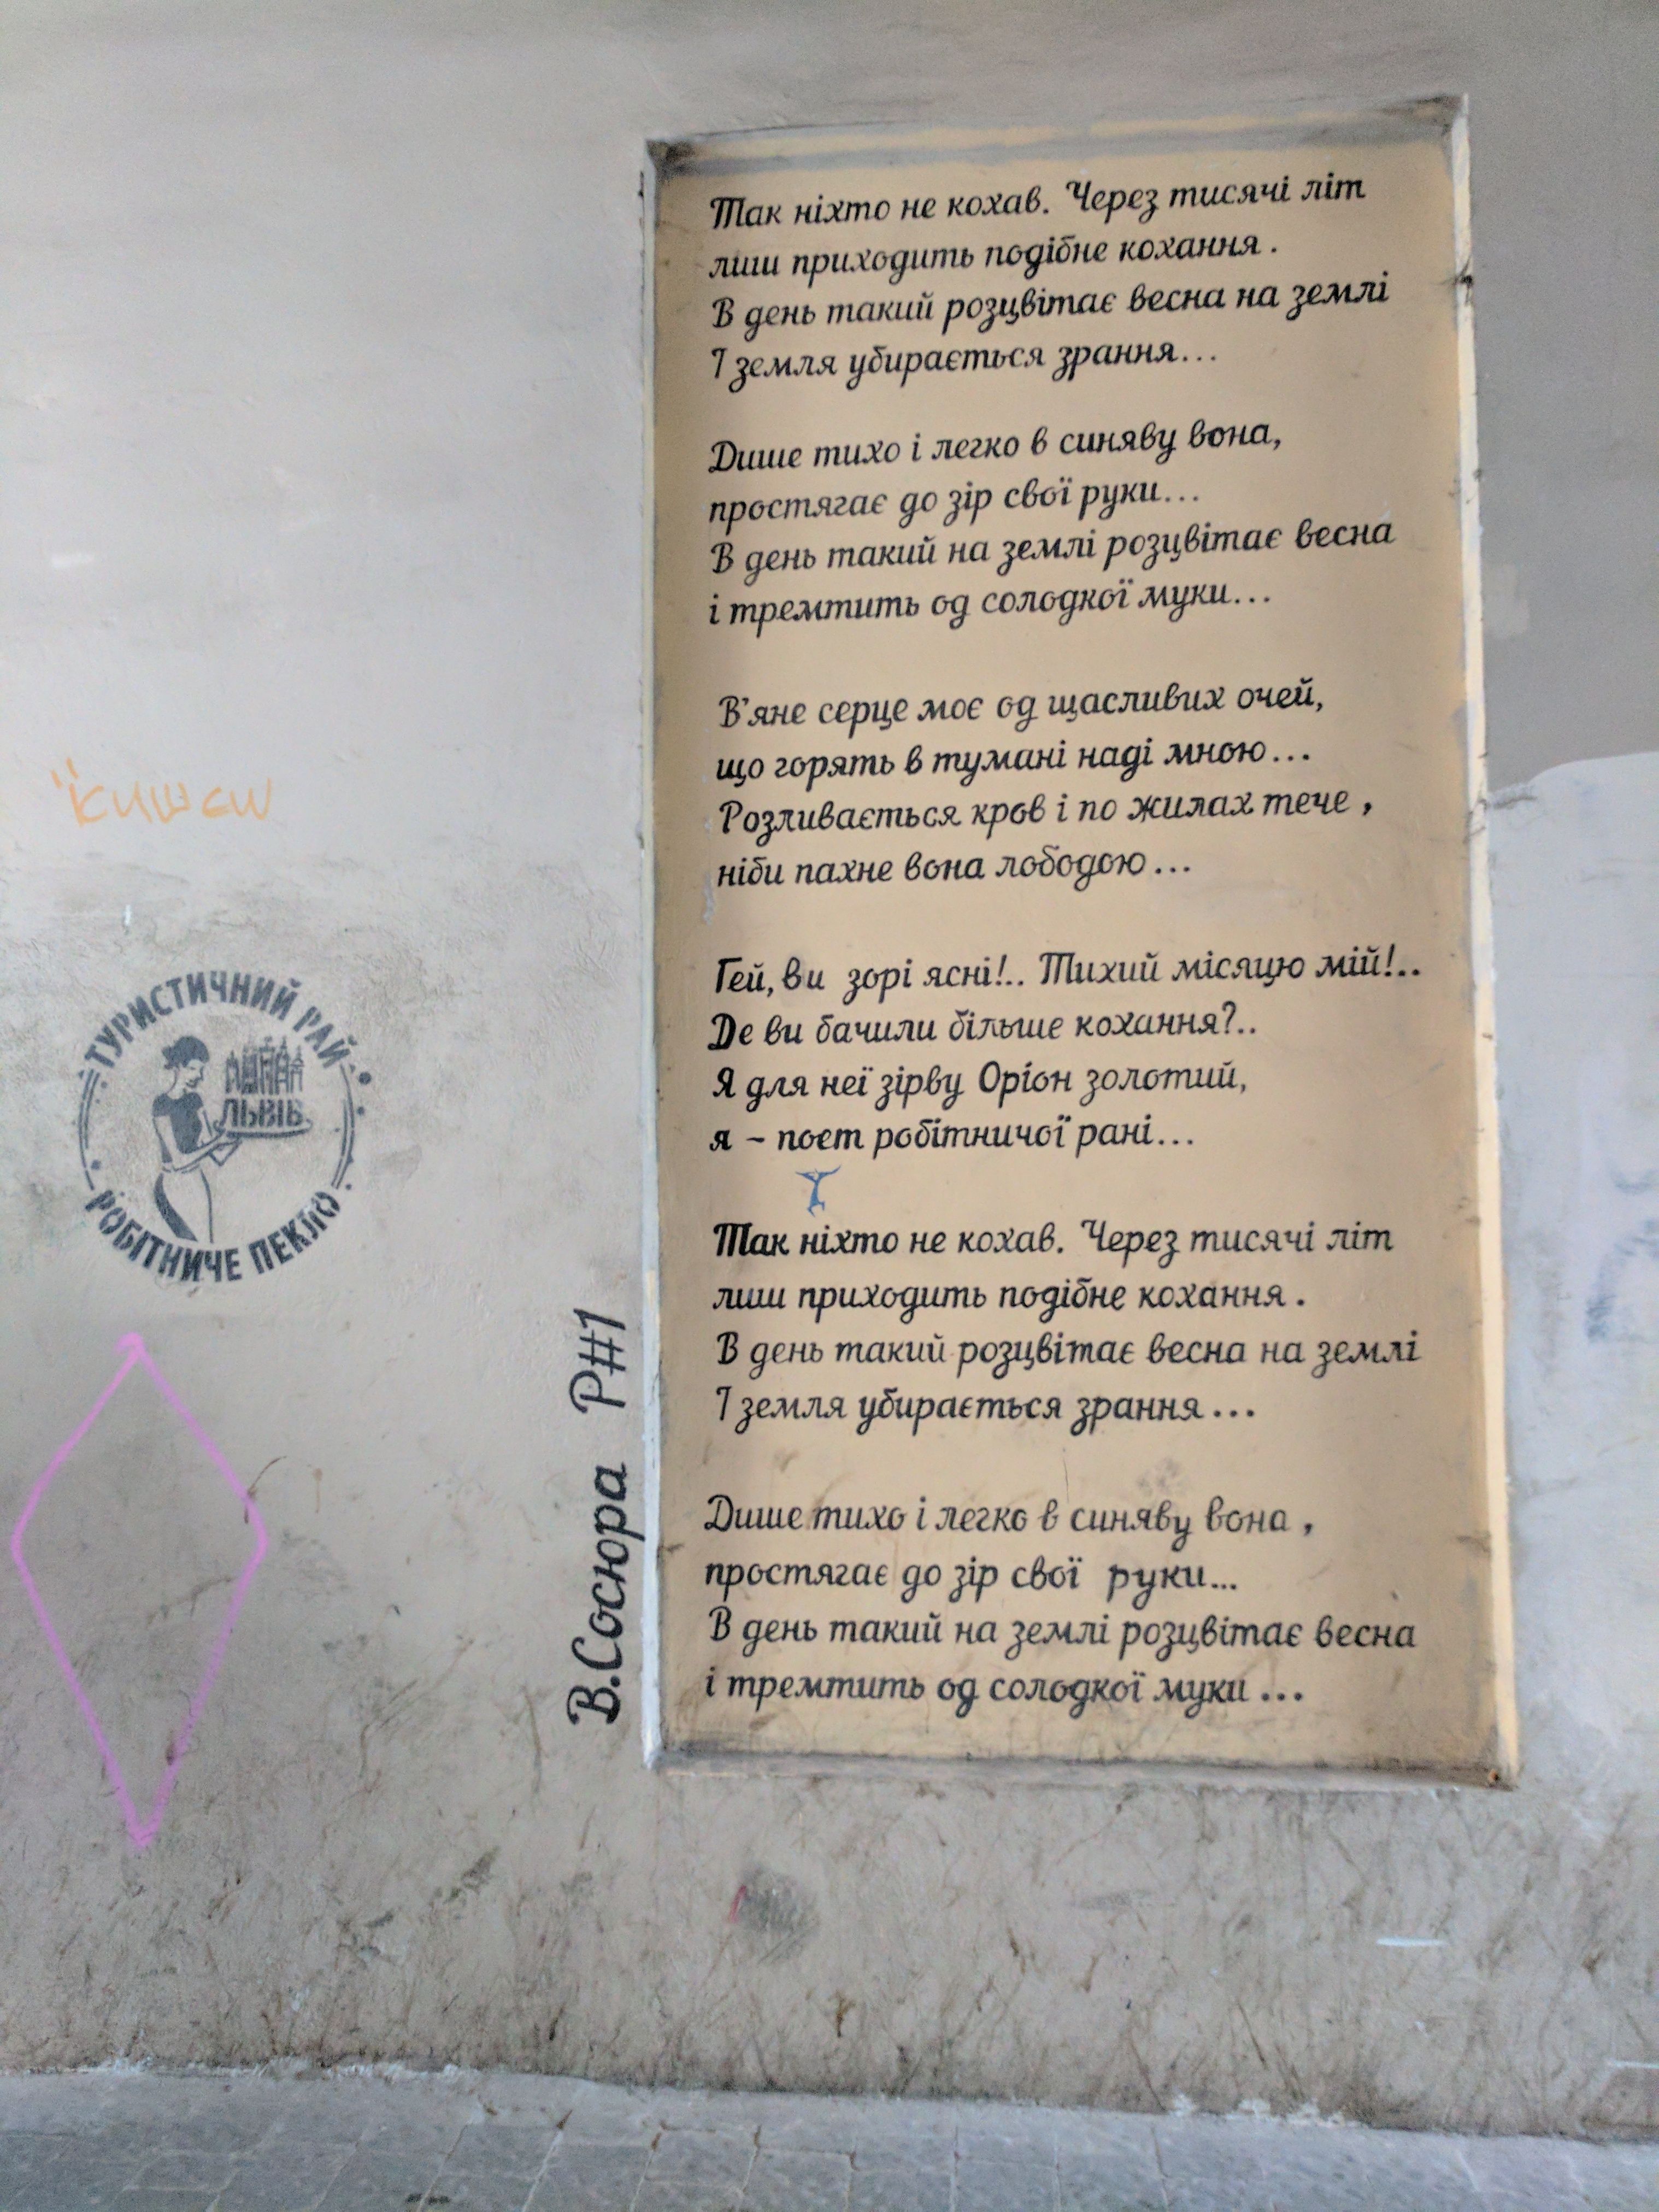 Так ніхто не кохав. Через тисячі літ
лиш приходить подібне кохання.
В день такий розцвітає весна на землі
І земля убирається зрання...
Дише тихо і легко в синяву вона,
простягає до зір свої руки...
В день такий на землі розцвітає весна
і тремтить од солодкої муки...
В'яне серце моє од щасливих очей,
що горять в тумані наді мною...
Розливається кров і по жилах тече,
ніби пахне вона лободою...
Гей, ви зорі ясні!.. Тихий місяцю мій!..
Де ви бачили більше кохання?..
Я для неї зірву Оріон золотий,
я - поет робітничої рані...
Так ніхто не кохав. Через тисячі літ
лиш приходить подібне кохання.
В день такий розцвітає весна на землі
І земля убирається зрання...
Дише тихо і легко в синяву вона,
простягає до зір свої руки...
В день такий на землі розцвітає весна
і тремтить од солодкої муки...
В.Сосюра Р#1
ТУРИСТИЧНИЙ РАЙ
ЛЬВІВ
РОБІТНИЧЕ ПЕКЛО